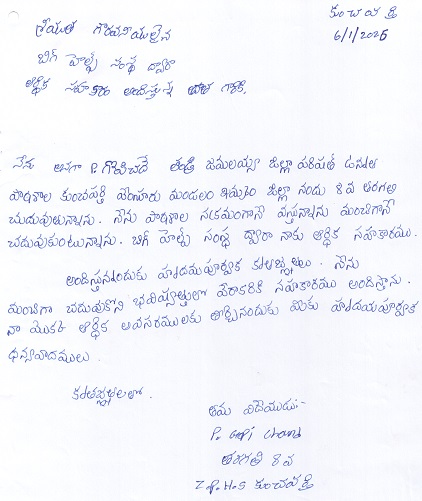 కుంచపర్తి
6/1/2026
శ్రీయుత గౌరవనీయులైన
బిగ్ హెల్ప్ సంస్థ ద్వారా
ఆర్థిక సహకారం అందిస్తున్న దాత గారికి,
నేను అనగా P. గోపిచంద్ తండ్రి జమలయ్య జిల్లా పరిషత్ ఉన్నత
పాఠశాల కుంచపర్తి మండలం జిల్లా నందు 8వ తరగతి
చదువుతున్నాను. నేను పాఠశాల సక్రమంగానే వస్తున్నాను మంచిగానే
చదువుకుంటున్నాను. బిగ్ హెల్ప్ సంస్థ ద్వారా నాకు ఆర్థిక సహకారము.
అందిస్తునందుకు హృదయపూర్వక కృతజ్ఞతలు. నేను
మంచిగా చదువుకొని భవిష్యత్తులో వేరొకరికి సహకారము అందిస్తాను.
నా యొక్క ఆర్థిక అవసరములకు తోడ్పినందుకు మీకు హృదయపూర్వక
ధన్యవాదములు.
కృతజ్ఞతలతో.
తమ విదేయుడు:-
P. Gopi Chand
తరగతి 8వ
Z.P.H.S కుంచపర్తి